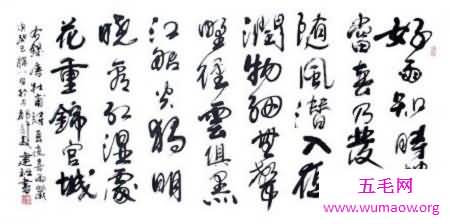 好雨知時
當春乃發
随風潛入夜
潤物細無聲
野徑雲俱黑
江船火獨明
曉看紅濕處
花重錦官城
唐杜甫詩春夜喜雨
書
五毛网
wumaow.com